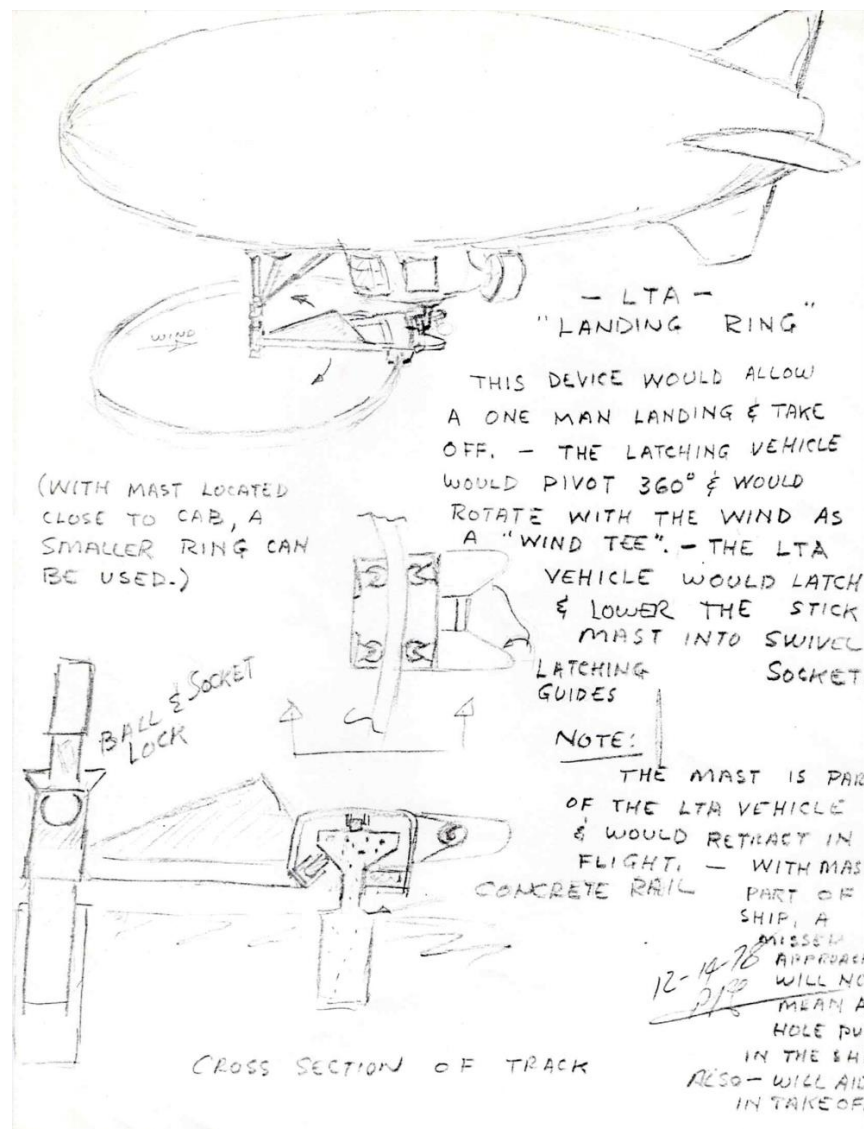 WIND
- LTA -
"LANDING RING"
THIS DEVICE WOULD ALLOW
A ONE MAN LANDING & TAKE
OFF. - THE LATCHING VEHICLE
WOULD PIVOT 360° & WOULD
ROTATE WITH THE WIND AS
A "WIND TEE". - THE LTA
VEHICLE WOULD LATCH
& LOWER THE STICK
MAST INTO SWIVEL
SOCKET
(WITH MAST LOCATED
CLOSE TO CAB, A
SMALLER RING CAN
BE USED.)
LATCHING
GUIDES
BALL & SOCKET
LOCK
NOTE:
THE MAST IS PAR
OF THE LTA VEHICLE
& WOULD RETRACT IN
FLIGHT. - WITH MAS
PART OF
SHIP, A
MISSED
APPROACH
WILL NO
MEAN A
HOLE PU
IN THE SH
ALSO - WILL AID
IN TAKEOFF
CONCRETE RAIL
12-14-78
CROSS SECTION OF TRACK